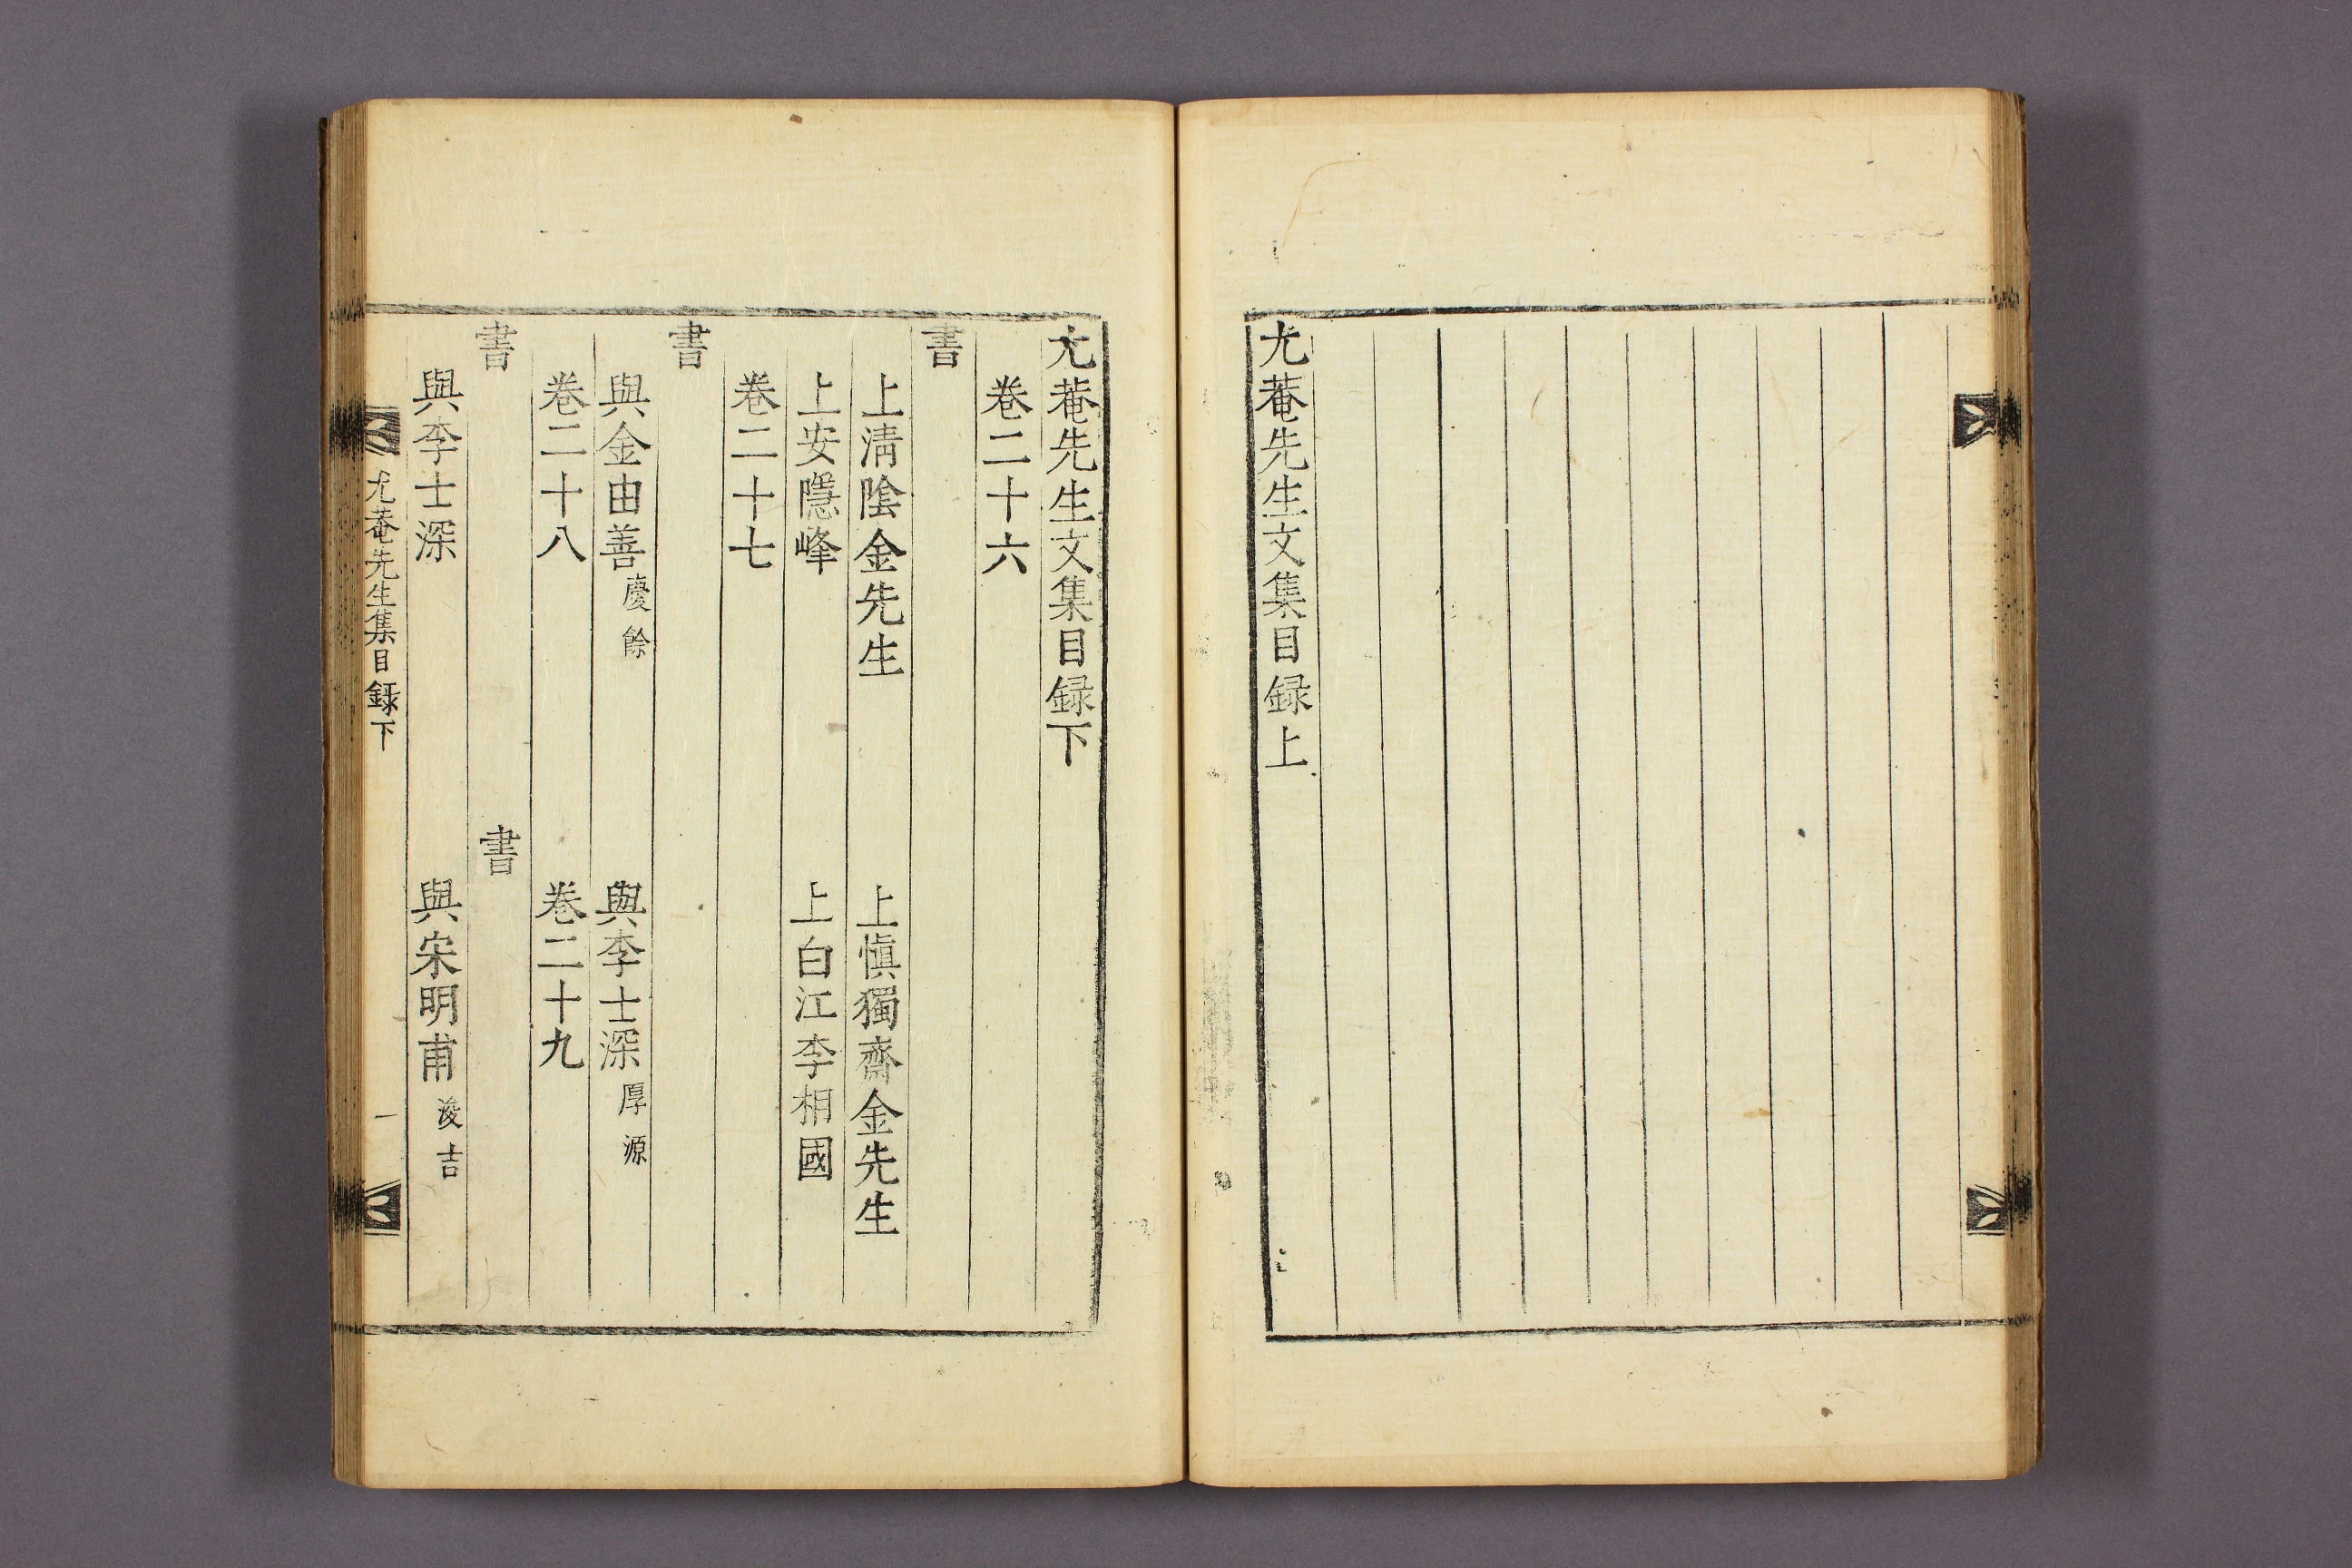 尤菴先生文集目録上
尤菴先生文集目録下
巻二十六
書
上清陰金先生
上慎獨齋金先生
上安隱峰
上白江李相國
巻二十七
書
與金由善 慶餘
與李士深 厚源
巻二十八
巻二十九
書
書
與李士深
與宋明甫 浚吉
尤菴先生集目録下
一